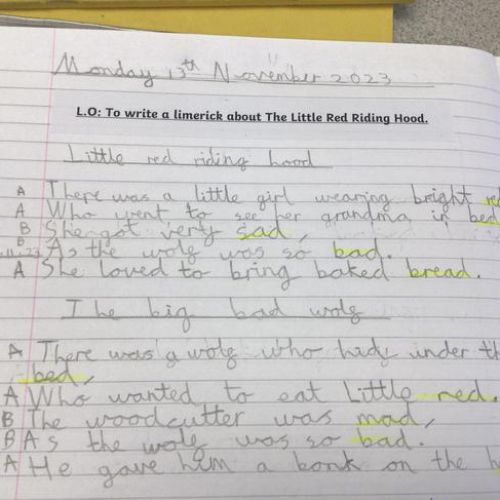 Monday 13th November 2023
L.O: To write a limerick about The Little Red Riding Hood.
Little red riding hood
A There was a little girl wearing bright
A Who went to see her grandma in
B She got verty sad,
B As the wolg was so bad.
A She loved to bring baked bread.
The big bad wolg
A There was a wolg who hids under
bed,
A Who wanted to eat Little red.
B The woodcutter was mad,
B As the wolg was so bad.
A He gave him a bonk on the